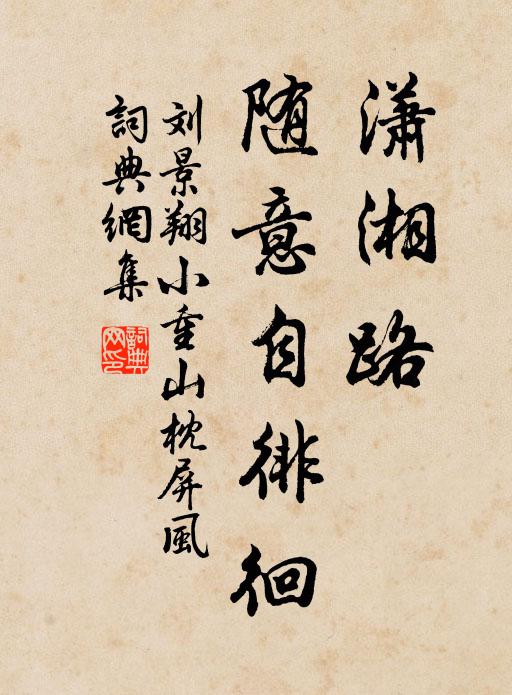 潇湘路
随意自徘徊
刘景翔小重山枕屏風
詞典網集
詞典网印